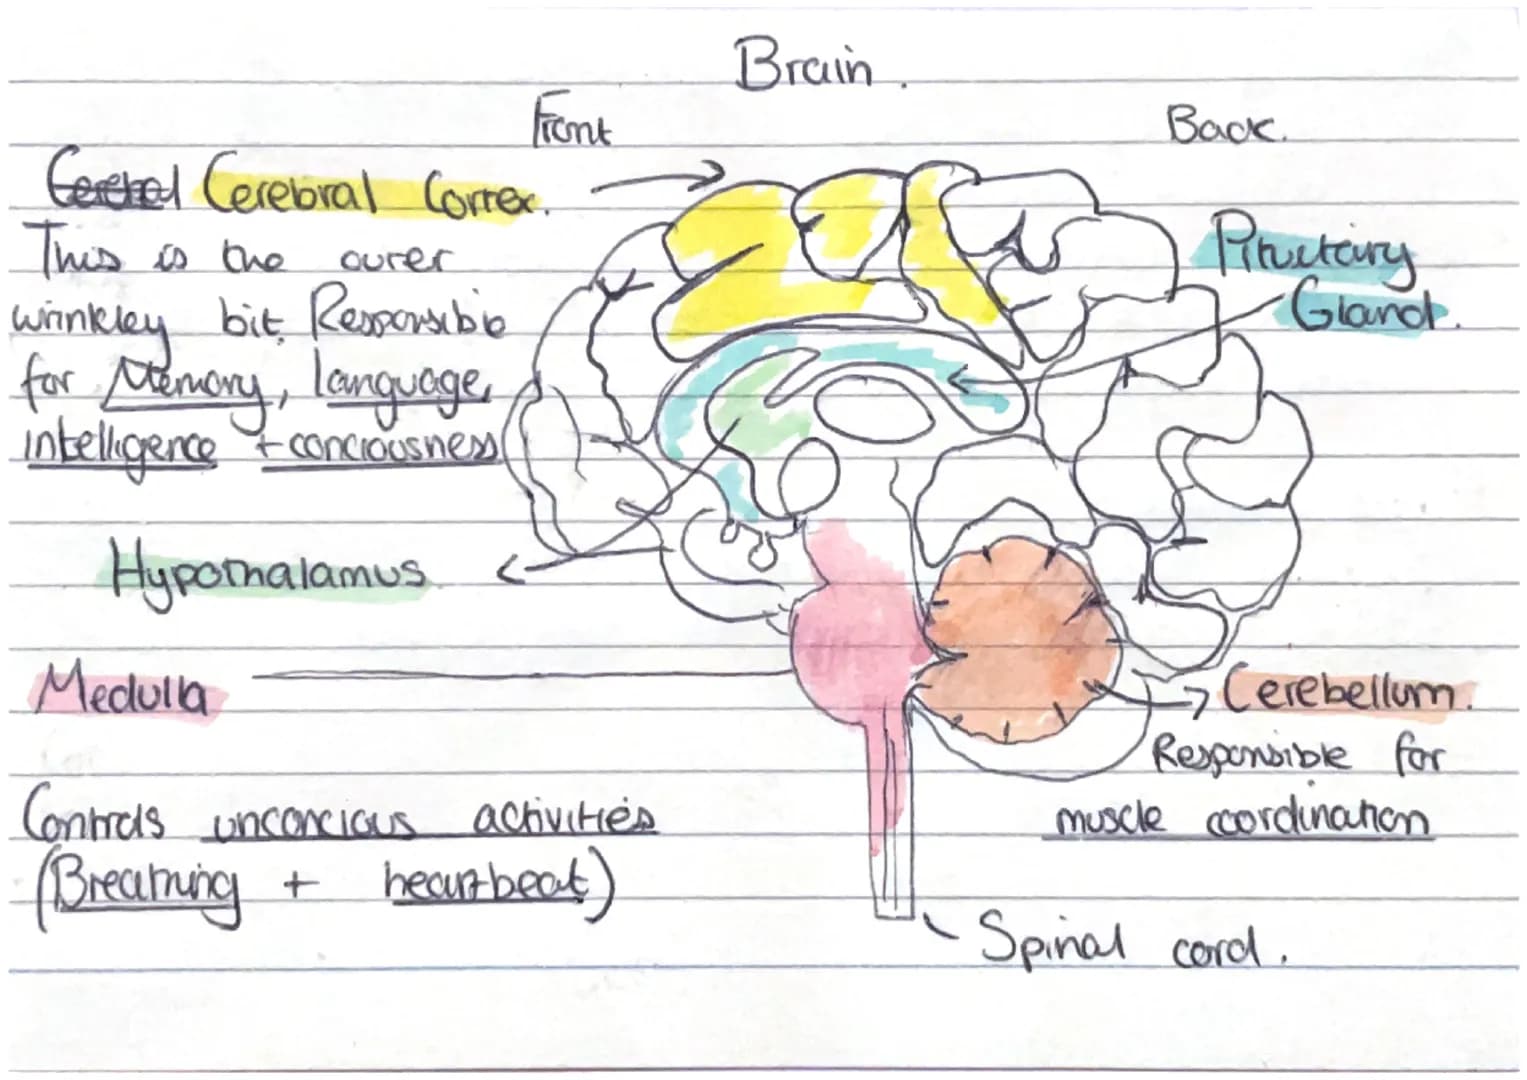 Brain.
Front
Back.
Cerebral Cerebral Cortex.
This is the outer
wrinkley bit. Responsible
for Memory, language,
intelligence + conciousness
Pituetary
Gland.
Hypothalamus
Medulla
Cerebellum.
Responsible for
muscle coordination
Controls unconcious activities
(Breathing + heartbeat)
Spinal cord.